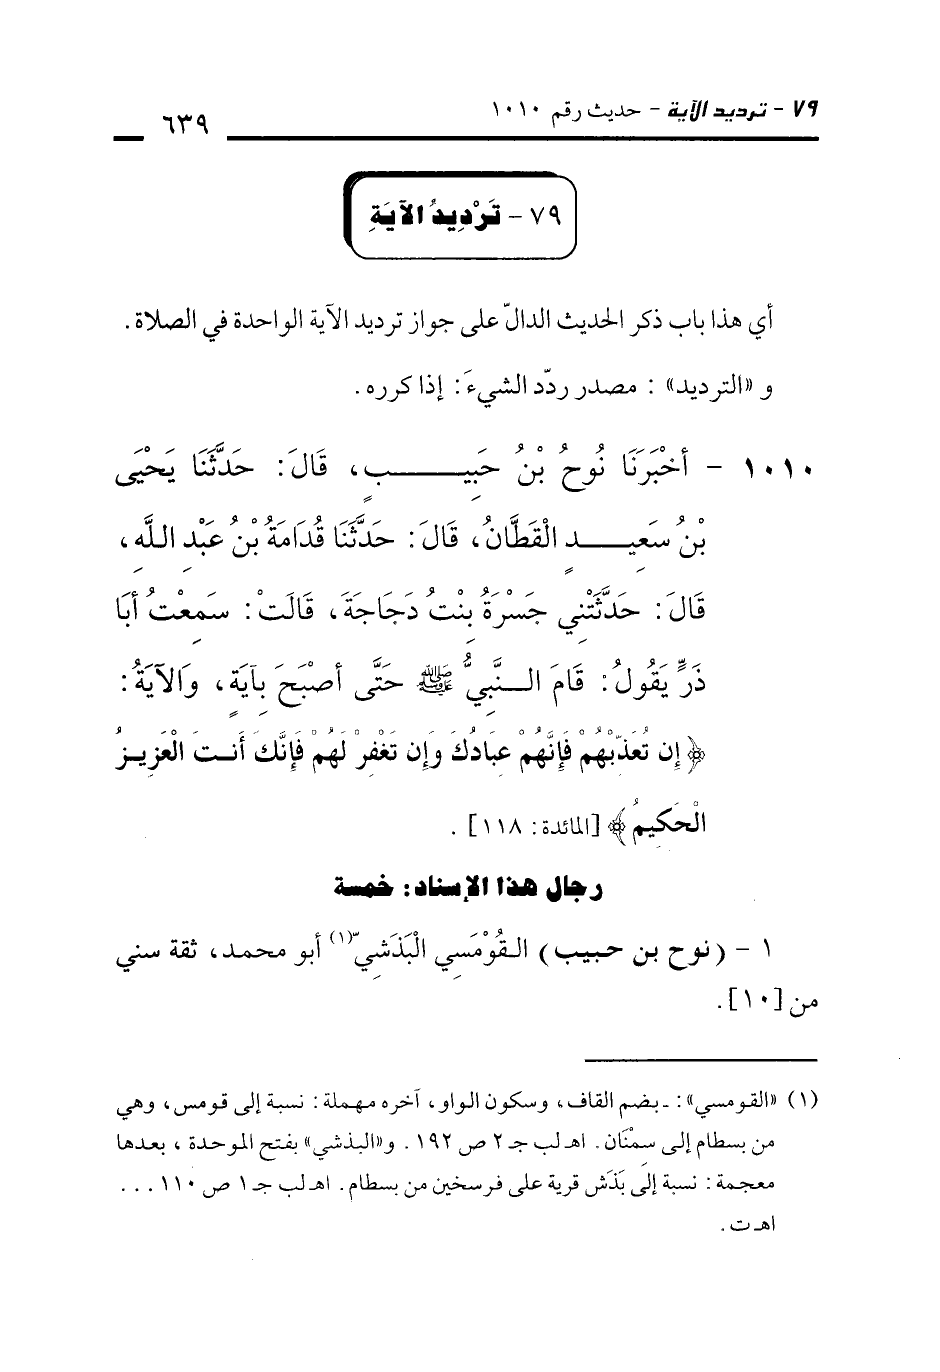 ٧٩ - ترديد الآية - حديث رقم ١٠١٠
٦٣٩
٧٩ - تَرْدِيدُ الآيَةِ
أي هذا باب ذكر الحديث الدالّ على جواز ترديد الآية الواحدة في الصلاة .
و «الترديد» : مصدر ردّد الشيءَ : إذا كرره .
١٠١٠ - أَخْبَرَنَا نُوحُ بْنُ حَبِيبٍ، قَالَ: حَدَّثَنَا يَحْيَى
بْنُ سَعِيدٍ الْقَطَّانُ، قَالَ: حَدَّثَنَا قُدَامَةُ بْنُ عَبْدِ اللَّهِ،
قَالَ: حَدَّثَتْنِي جَسْرَةُ بِنْتُ دَجَاجَةَ، قَالَتْ: سَمِعْتُ أَبَا
ذَرٍّ يَقُولُ: قَامَ النَّبِيُّ ﷺ حَتَّى أَصْبَحَ بِآيَةٍ، وَالآيَةُ:
﴿إِن تُعَذِّبْهُمْ فَإِنَّهُمْ عِبَادُكَ وَإِن تَغْفِرْ لَهُمْ فَإِنَّكَ أَنتَ الْعَزِيزُ
الْحَكِيمُ﴾ [المائدة: ١١٨] .
رجال هذا الإسناد: خمسة
١ - (نوح بن حبيب) القُوْمَسِي الْبَذَشِيّ(١) أبو محمد، ثقة سني
من [١٠] .
(١) «القومسي»: - بضم القاف، وسكون الواو، آخره مهملة: نسبة إلى قومس، وهي
من بسطام إلى سمْنَان. اهـ لب جـ ٢ ص ١٩٢ . و«البذشي» بفتح الموحدة ، بعدها
معجمة: نسبة إلى بَذَش قرية على فرسخين من بسطام. اهـ لب جـ ١ ص ١١٠ ...
اهـ ت .